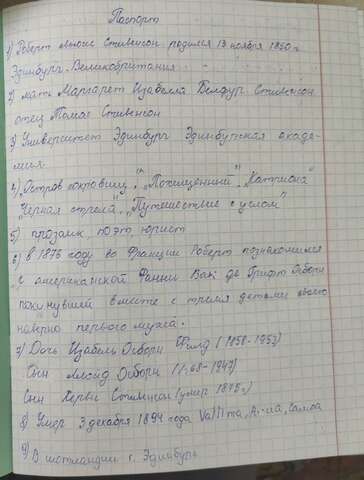 Паспорт
1) Роберт Льюис Стивенсон родился 13 ноября 1850 г.
Эдинбург. Великобритания.
2) мать Маргарет Изабелла Белфур Стивенсон
отец Томас Стивенсон
3) Университет Эдинбург Эдинбугская акаде-
мия.
4) Остров сокровищ", "Похищенный", "Катриона"
"Черная стрела", "Путешествие с ослом"
5) прозаик, поэт юрист
6) в 1876 году во Франции Роберт познакомился
с американкой Фанни Ван де Грифт Осборн
покинувшей вместе с тремя детьми своего
неверно первого мужа.
7) Дочь Изабель Осборн Филд (1858-1953)
Сын Ллойд Осборн (1868-1947)
Сын Херви Стивенсон (умер 1875г)
8) Умер 3 декабря 1894 года Самоа
9) В шотландии г. Эдинбург